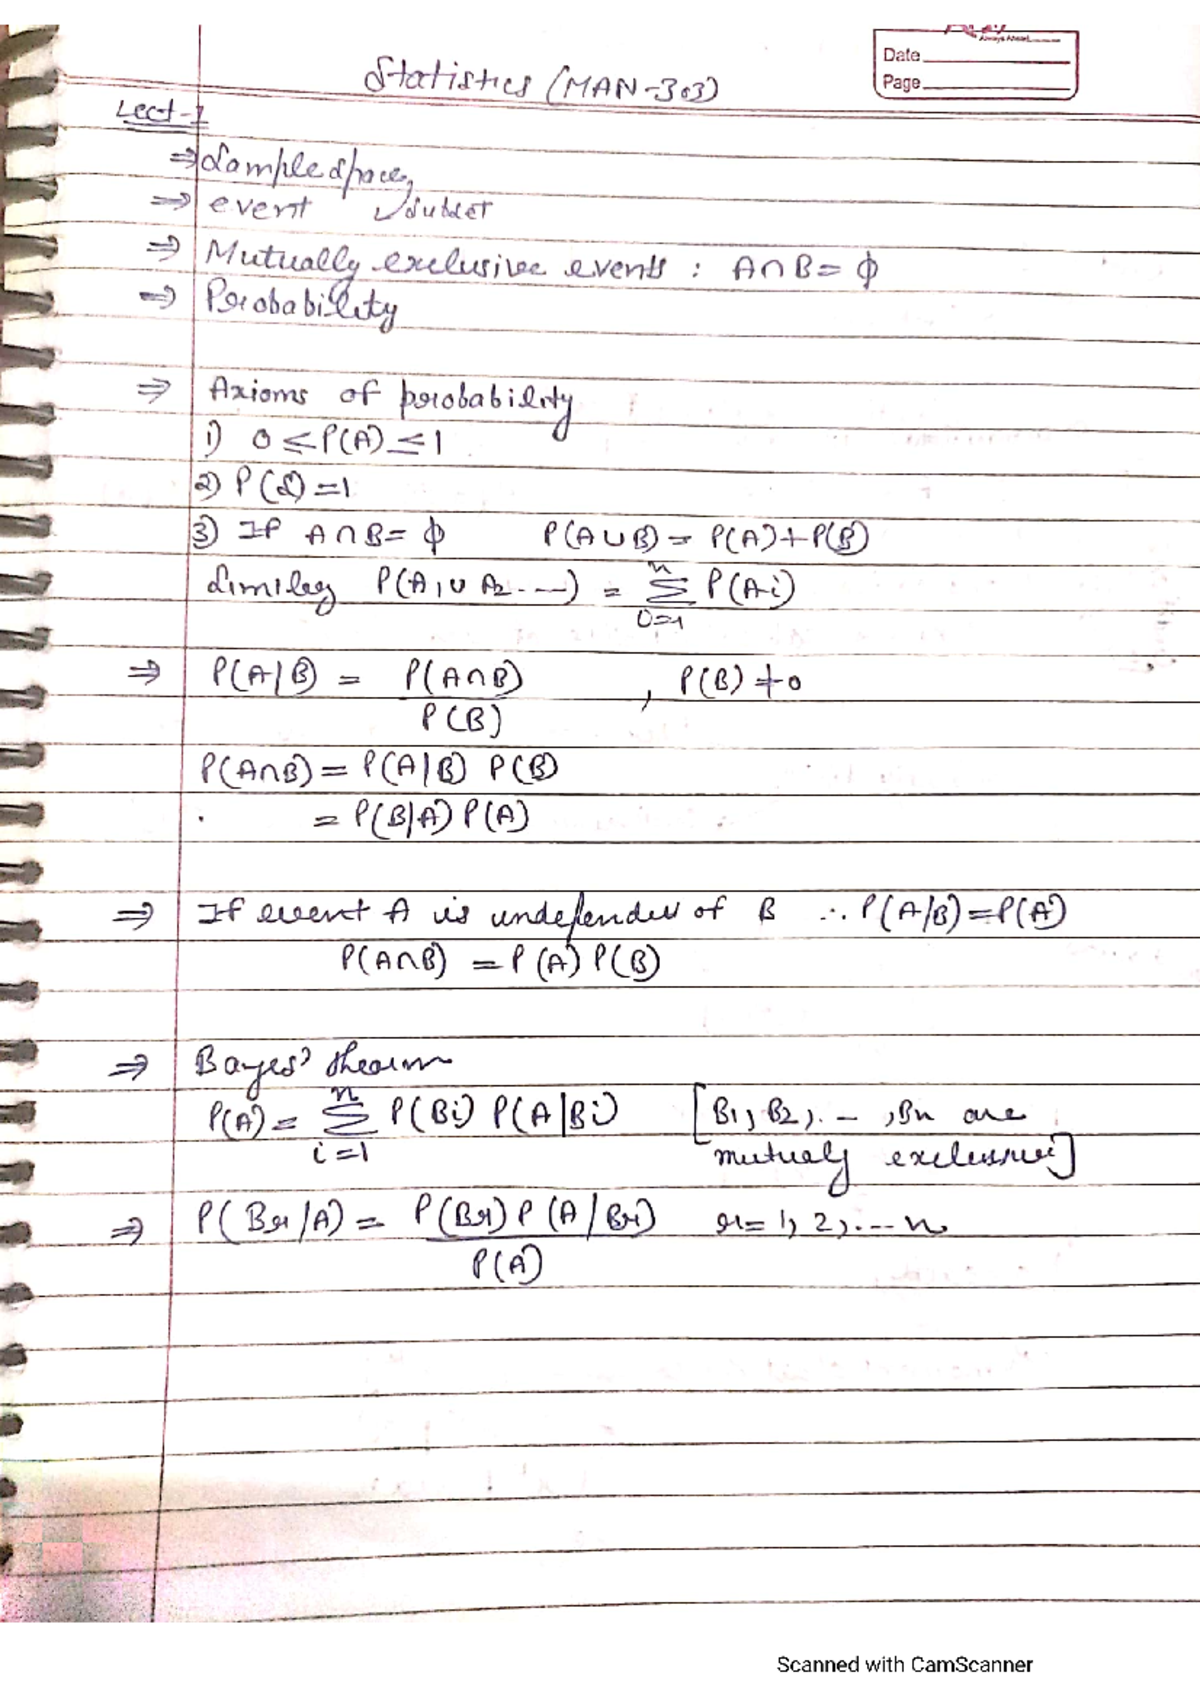 Date
Page
Statistics (MAN-303)
Lect-1
⇒ Sample space,
⇒ event ↙ subset
⇒ Mutually exclusive events : A∩B = ϕ
⇒ Probability
⇒ Axioms of probability
1) 0 ≤ P(A) ≤ 1
2) P(S) = 1
3) If A∩B = ϕ P(A∪B) = P(A)+P(B)
P(A₁∪A₂...) = Σ P(Ai)
⇒ P(A|B) = P(A∩B) / P(B) , P(B) ≠ 0
P(A∩B) = P(A|B) P(B)
= P(B|A) P(A)
⇒ If event A is of B ∴ P(A/B) = P(A)
P(A∩B) = P(A) P(B)
⇒ Bayes'
P(A) = n Σ i=1 P(Bi) P(A|Bi) [B1, B2, . - , Bn are
mutualy]
⇒ P(Br/A) = P(Br) P(A/Br) / P(A) r = 1, 2, ... n
Scanned with CamScanner